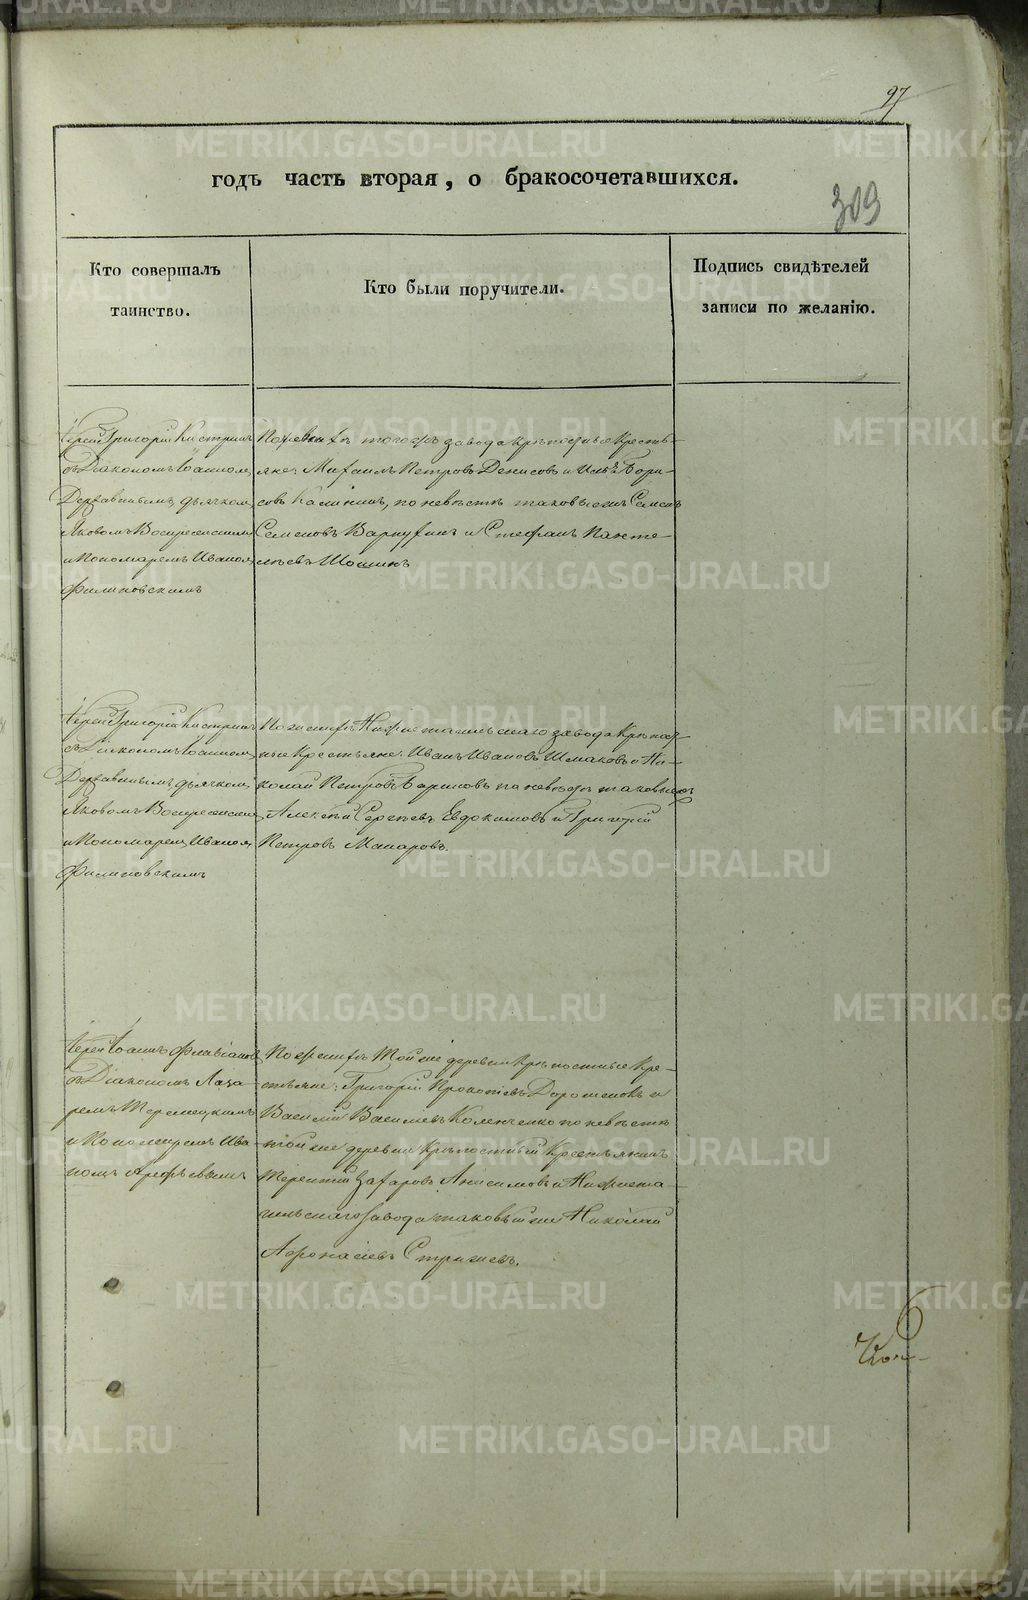 97
годъ часть вторая, о бракосочетавшихся.
309
Кто совершалъ
таинство.
Кто были поручители.
Подпись свидѣтелей
записи по желанію.
Іерей Григорій
съ Діакономъ Іоанномъ
Державинымъ, дьячкомъ
Яковомъ Воскресенскимъ
и Пономаремъ Иваномъ
Филиповскимъ
По женихѣ того же завода крѣпостные кресть-
яне: Михаилъ Петровъ Денисовъ и Илья Бори-
совъ Калининъ, по невѣстѣ таковые же Семенъ
Семеновъ и Стефанъ Панте-
лѣевъ
Іерей Григорій
съ Діакономъ Іоанномъ
Державинымъ, дьячкомъ
Яковомъ Воскресенскимъ
и Пономаремъ Иваномъ
Филиповскимъ
По женихѣ Нижнетагильскаго завода Крѣпост-
ные Крестьяне: Иванъ Ивановъ Шмаковъ и Ни-
колай Петровъ по невѣстѣ таковые же
Алексѣй Сергѣевъ Евдокимовъ и Григорій
Петровъ Макаровъ.
Іерей Іоаннъ Флавіановъ
съ Діакономъ Лаза-
ремъ
и Пономаремъ Ива-
номъ Арефьевымъ
По женихѣ той же деревни Крѣпостные Кре-
стьяне: Григорій Прокопьевъ и
Василій Васильевъ по невѣстѣ
той же деревни Крѣпостный Крестьянинъ
Терентій Захаровъ Анисимовъ и Нижнета-
гильскаго завода таковый же Николай
Афонасіевъ Стрижевъ.
METRIKI.GASO-URAL.RU